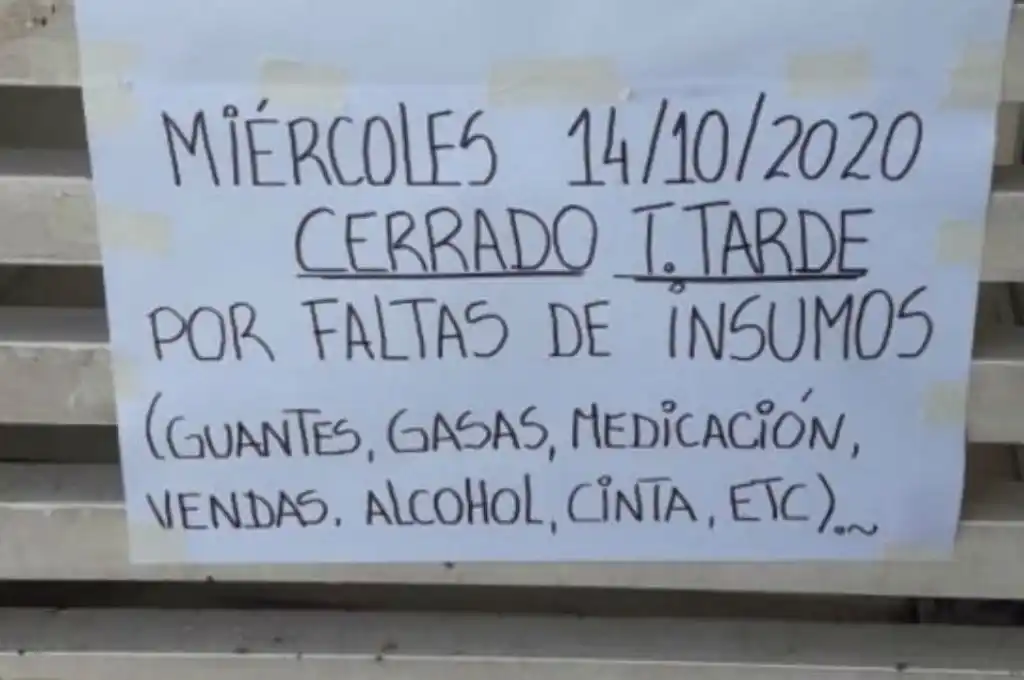 MIÉRCOLES 14/10/2020
CERRADO T. TARDE
POR FALTAS DE INSUMOS
(GUANTES, GASAS, MEDICACIÓN,
VENDAS. ALCOHOL, CINTA, ETC).~